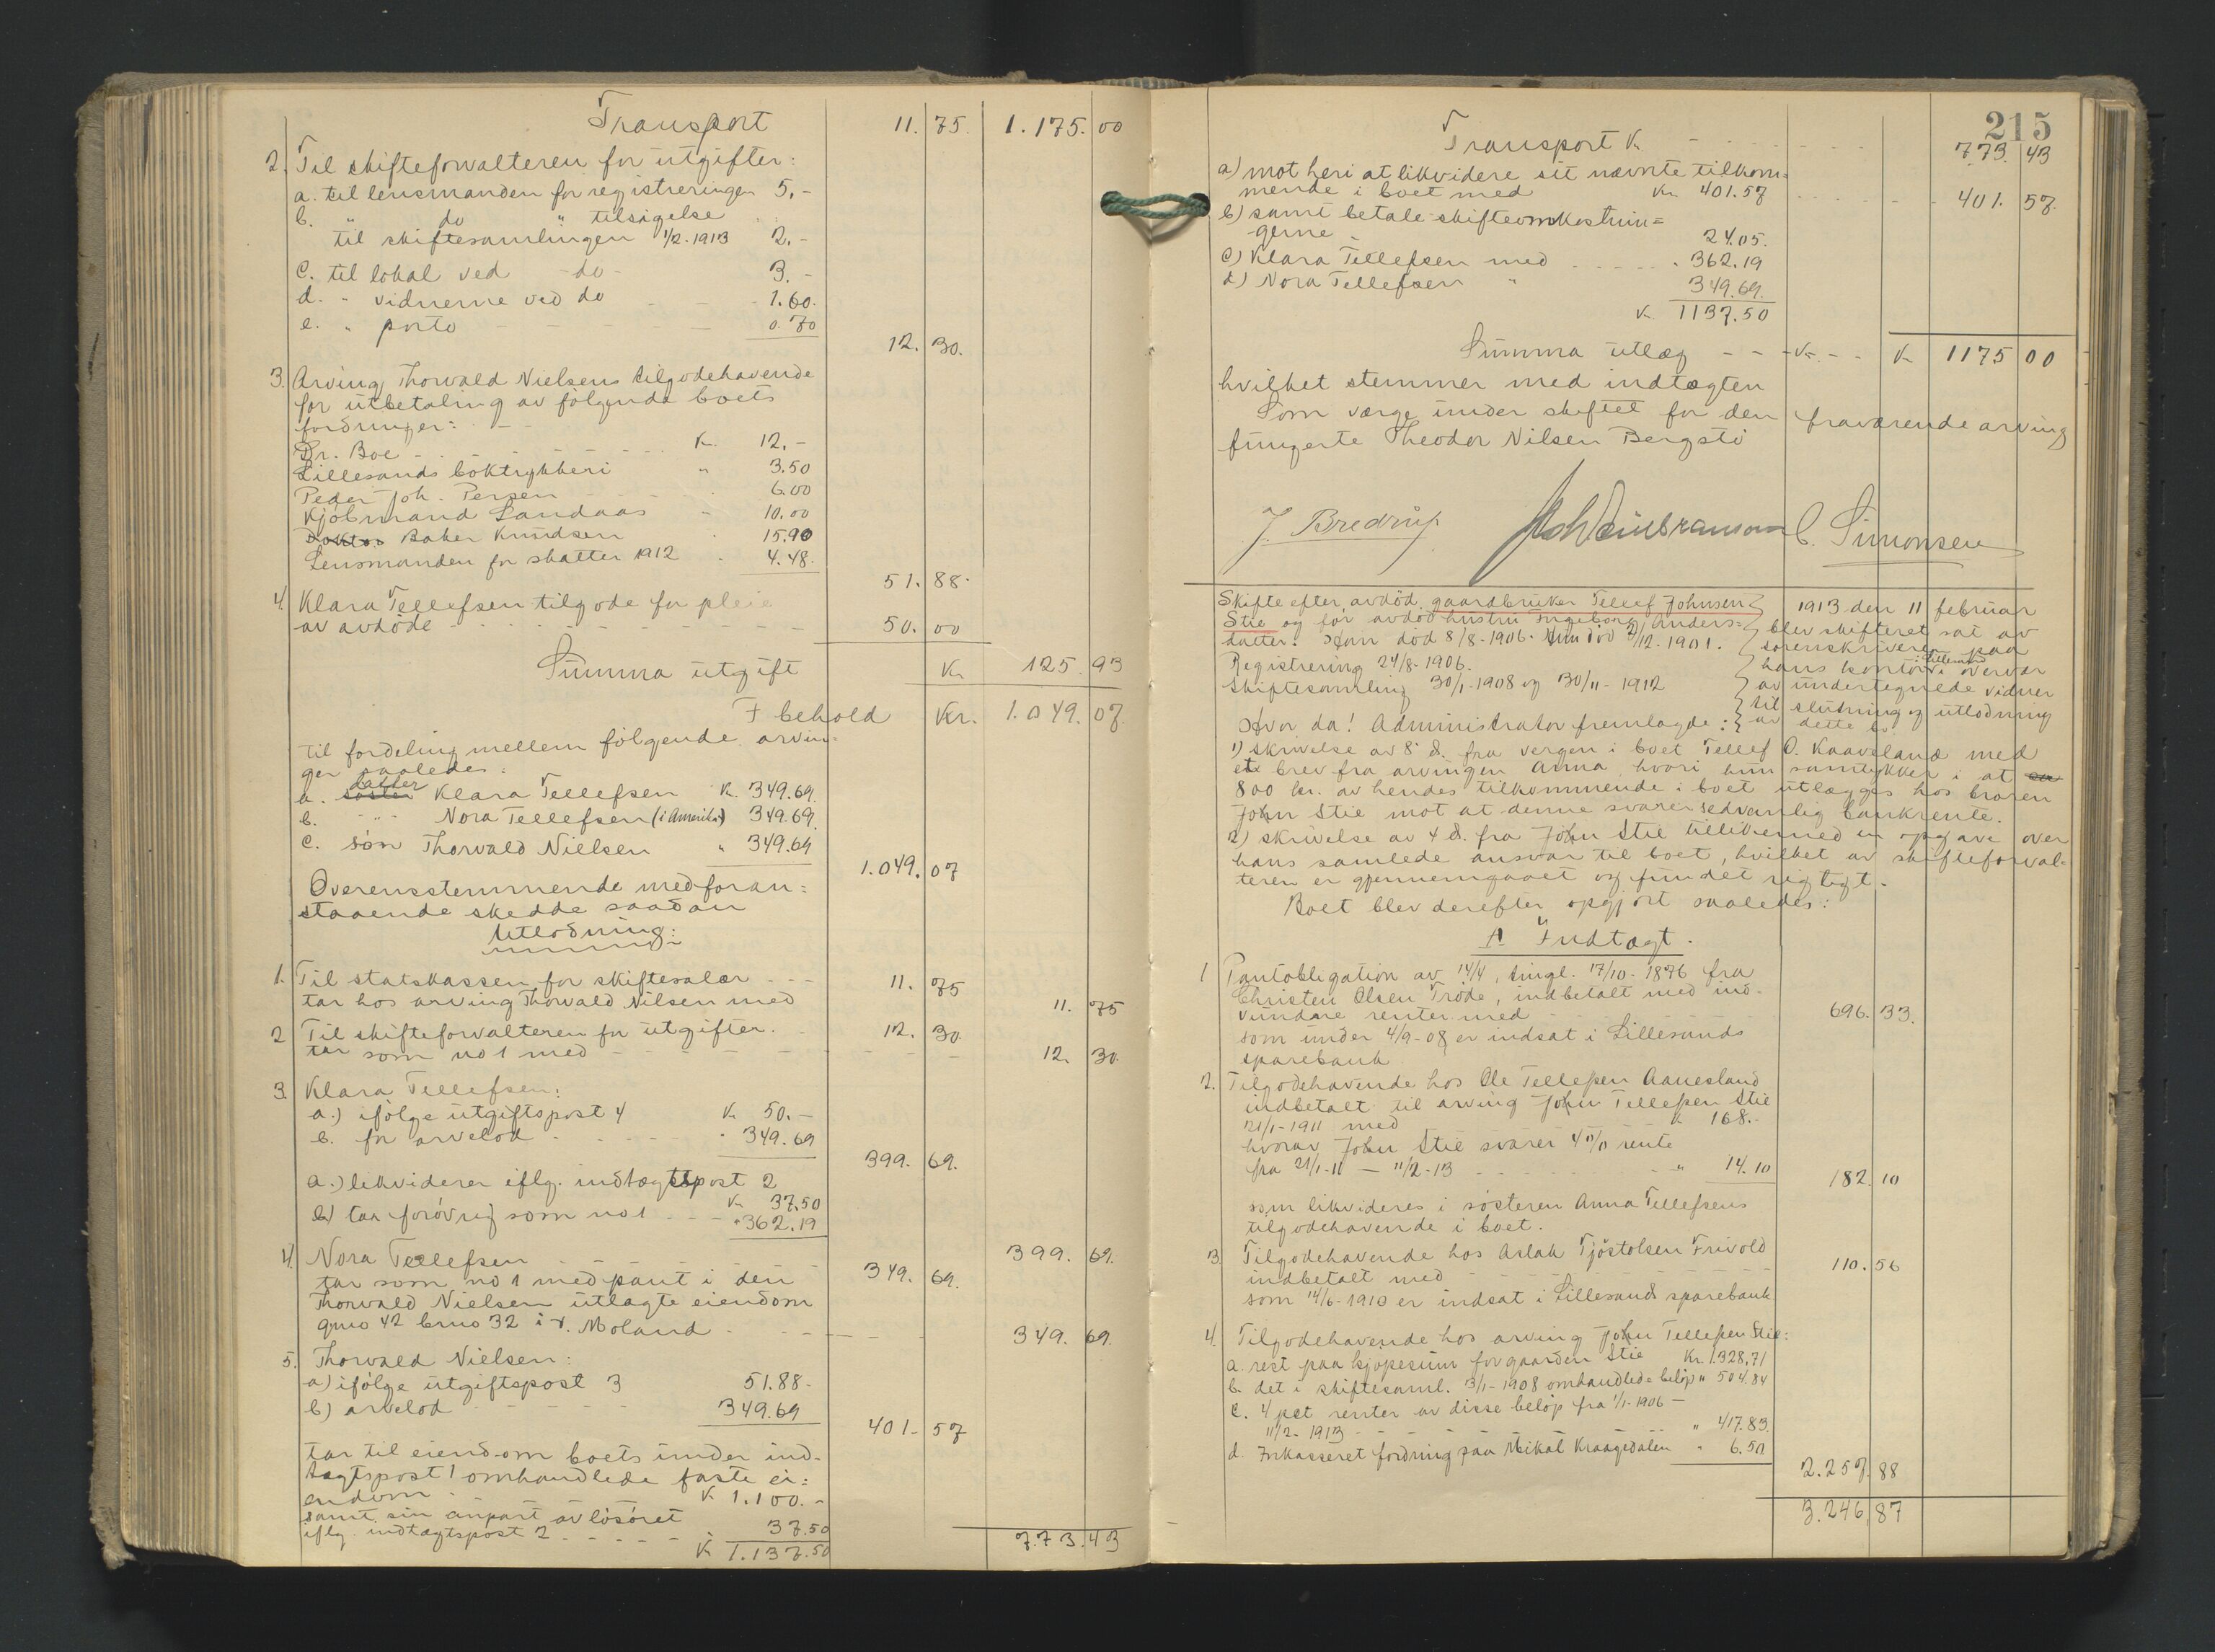 Transport 11. 75. 1.175. 00
2. Til skifteforvalteren for utgifter:
a. til lensmanden for registreringen 5.-
b. " do " tilsigelse
til skiftesamlingen 1/2-1913 2.-
c. til lokal ved -do- 3.-
d. " vidnerne ved do 1.60.
e. " porto 0.70
12. 30.
3. Arving Thorvald Nielsens tilgodehavende
for utbetaling av følgende boets
fordringer:
Dr. Boe K. 12.-
Lillesands boktrykkeri " 3.50
Peder Joh. Persen 6.00
Kjøbmand Landaas 10.00
Doktor Baker Knudsen 15.90
Lensmanden for skatter 1912 4.48.
51. 88.
4. Klara Tellefsen tilgode for pleie
av avdøde 50. 00
Summa utgift K. 125. 93
I behold Kr. 1.049. 07.
til fordeling mellem følgende arvin-
ger saaledes:
a. søster datter Klara Tellefsen K. 349.69.
b. " Nora Tellefsen (i Amerika) 349.69.
c. søn Thorvald Nielsen " 349.69
1.049. 07
Overensstemmende med foran=
staaende skedde saadan
Utlodning:
1. Til statskassen for skiftesalær 11. 75
tar hos arving Thorvald Nilsen med 11. 75
2 Til skifteforvalteren for utgifter. 12. 30.
tar som no 1 med 12. 30.
3. Klara Tellefsen:
a.) ifølge utgiftspost 4 K. 50.-
b. for arvelod 349.69
399. 69.
a.) likviderer iflg. indtægtspost 2
K. 37.50
b) tar forøvrig som no 1 362.19
399. 69.
4. Nora Tellefsen 349. 69.
tar som no 1 med pant i den
Thorvald Nielsen utlagte eiendom
gno 42 bno 32 i v. Moland 349. 69.
5. Thorvald Nielsen:
a) ifølge utgiftspost 3 51.88-
b) arvelod 349.69
401- 57
tar til eiendom boets under ind-
tægtspost 1 omhandlede faste ei=
endom K 1.100.-
samt sin anpart av løsøret
iflg. indtægtspost 2 37.50
K 1.137.50
773. 43
215
Transport K. 773. 43
a) mot heri at likvidere sit nævnte tilkom=
mende i boet med Kr 401.57 401. 57.
b) samt betale skifteomkostnin=
gerne 24.05.
c) Klara Tellefsen med 362.19
d) Nora Tellefsen " 349.69.
K. 1137.50
Summa utlæg K 1175 00
hvilket stemmer med indtægten
Som værge under skiftet for den fraværende arving
fungerte Theodor Nilsen Bergstø
J. Bredrup. C. Simonsen
Skifte efter avdød gaardbruker Tellef Johnsen
Stie og før avdød hustru Ingeborg Anders=
datter. Han død 8/8-1906. Hun død 2/12-1901.
Registrering 24/8-1906.
Skiftesamling 30/1-1908 og 30/11-1912
1913 den 11 februar
blev skifteret sat av
sorenskriveren paa
hans kontor i Lillesand i overvær
av undertegnede vidner
til slutning og utlodning
av dette bo
Hvor da! Administrator fremlagde:
1) skrivelse av 8 d. fra vergen i boet Tellef O. Kaaveland med
et brev fra arvingen Anna, hvori hun samtykker i at
800 kr. av hendes tilkommende i boet utlægges hos broren
John Stie mot at denne svarer sedvanlig bankrente.
2) skrivelse av 4 d. fra John Stie tillikemed en opgave over
hans samlede ansvar til boet, hvilket av skifteforval=
teren er gjennemgaaet og fundet rigtigt.
Boet blev derefter opgjort saaledes:
A Indtægt.
1 Pantobligation av 14/4, tingl. 17/10-1876 fra
Christen Olsen Trøde, indbetalt med ind-
vundne renter med 696. 33.
som under 4/9-08 er indsat i Lillesands
sparebank
2. Tilgodehavende hos Ole Tellefsen Aanesland
indbetalt til arving John Tellefsen Stie
21/1-1911 med K 168.-
hvorav John Stie svarer 4 % rente
fra 21/1-11 - 11/2-13 " 14.10
182. 10
som likvideres i søsteren Anna Tellefsens
tilgodehavende i boet.
3. Tilgodehavende hos Aslak Tjøstolsen Frivold
indbetalt med 110. 56
som 14/6-1910 er indsat i Lillesands sparebank
4. Tilgodehavende hos arving John Tellefsen Stie:
a. rest paa kjøpesum for gaarden Stie Kr. 1.328,71
b. det i skiftesaml. 3/1-1908 omhandlede beløp " 504.84
c. 4 pct renter av disse beløp fra 1/1-1906 -
11/2-1913 " 417.83.
d. Inkasseret fordring paa Mikal Kraagedalen " 6.50
2.257. 88
3.246, 87